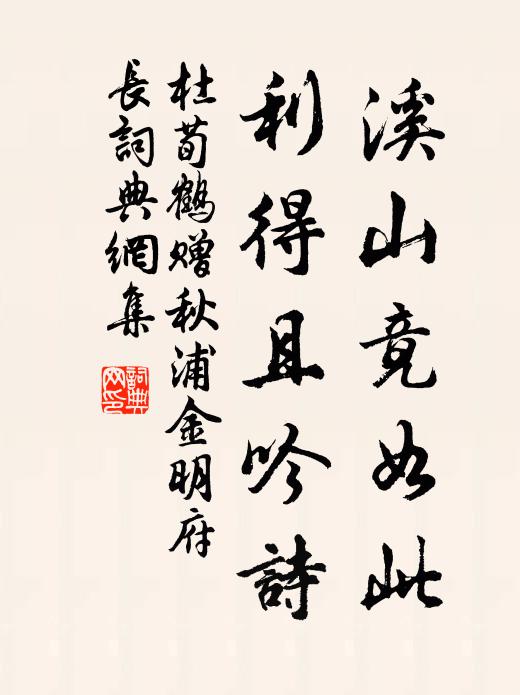 溪山竟如此
利得且吟詩
杜荀鶴赠秋浦金明府
長詞典網集
詞典
网印